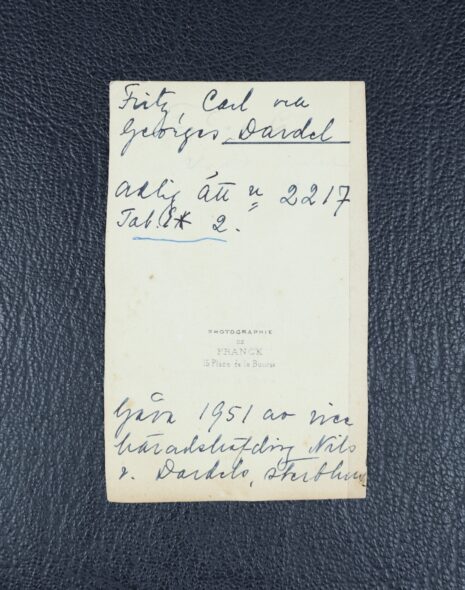 Fritz, Carl och
Georges Dardel
Adlig ätt n 2217
Tab. 2.
PHOTOGRAPHIE
DE
FRANCK
15 Place de la Bourse
Gåva 1951 av vice
häradshöfding Nils
v. Dardels, sterbhus